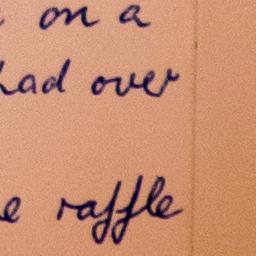 on a
had over
raffle